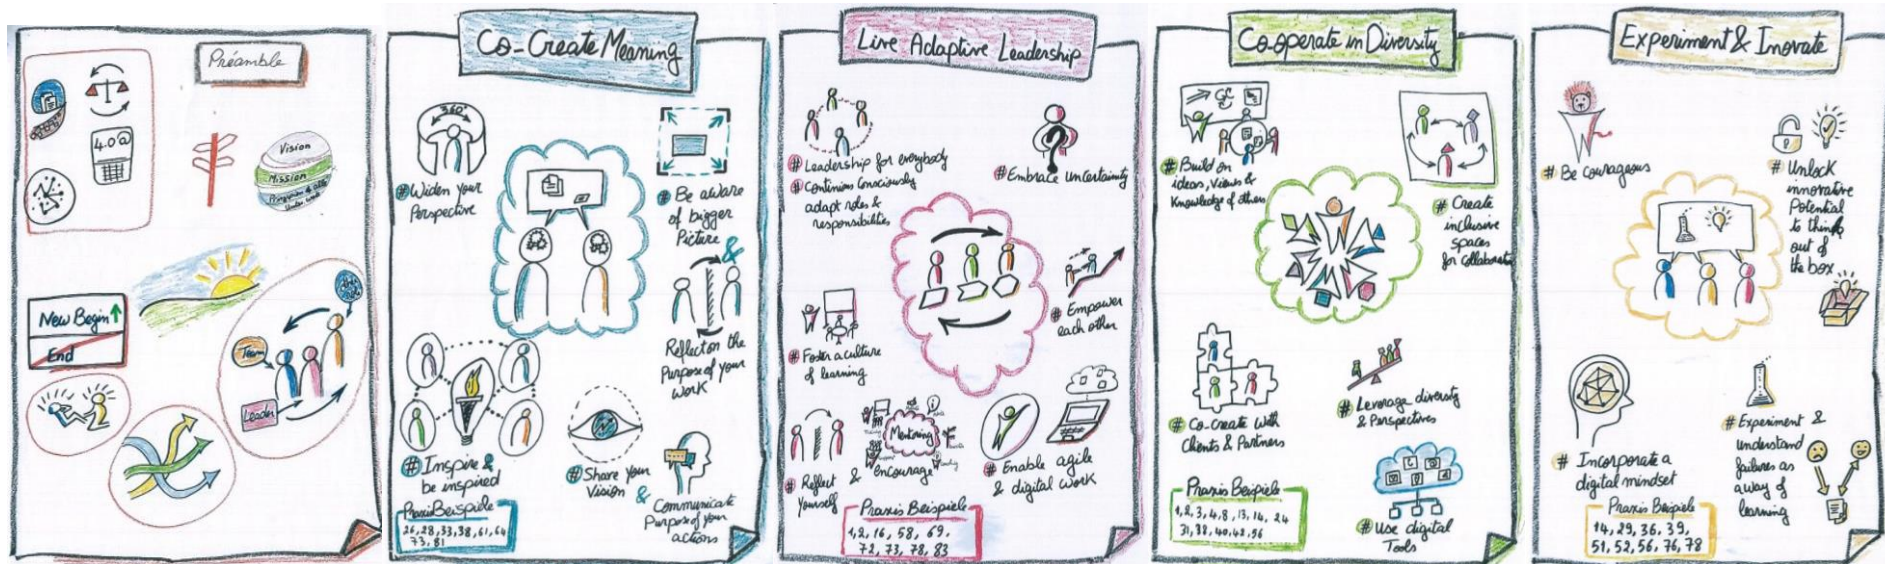 Préamble
4.0@
Vision
Mission
New Begin
End
Team
Leader
Co-Create Meaning
360°
# Widen your
Perspective
# Be aware
of bigger
Picture &
Reflect on the
Purpose of your
Work
# Inspire &
be inspired
# Share your
Vision &
Communicate
Purpose of your
actions
Praxis Beispiele
26, 28, 33, 38, 61, 64
73, 81
Live Adaptive Leadership
# Leadership for everybody
# Continious Consciously
adapt roles &
responsibilities
# Embrace uncertainity
# Empower
each other
# Foster a culture
of learning
# Reflect &
Yourself
Mentoring
encourage
# Enable agile
& digital work
Praxis Beispiele
1, 2, 16, 58, 69,
72, 73, 78, 83
Co-operate in Diversity
# Build on
ideas, views &
Knowledge of others
# Create
inclusive
spaces
for collaboration
# Co-create with
Clients & Partners
# Leverage diversity
& Perspectives
# Use digital
Tools
Praxis Beispiele
1, 2, 3, 4, 8, 13, 14, 24
31, 32, 40, 42, 56
Experiment & Inovate
# Be courageous
# Unlock
innovative
Potential
to think
out of
the box
# Incorporate a
digital mindset
# Experiment &
understand
failures as
a way of
learning
Praxis Beispiele
14, 29, 36, 39,
51, 52, 56, 76, 78